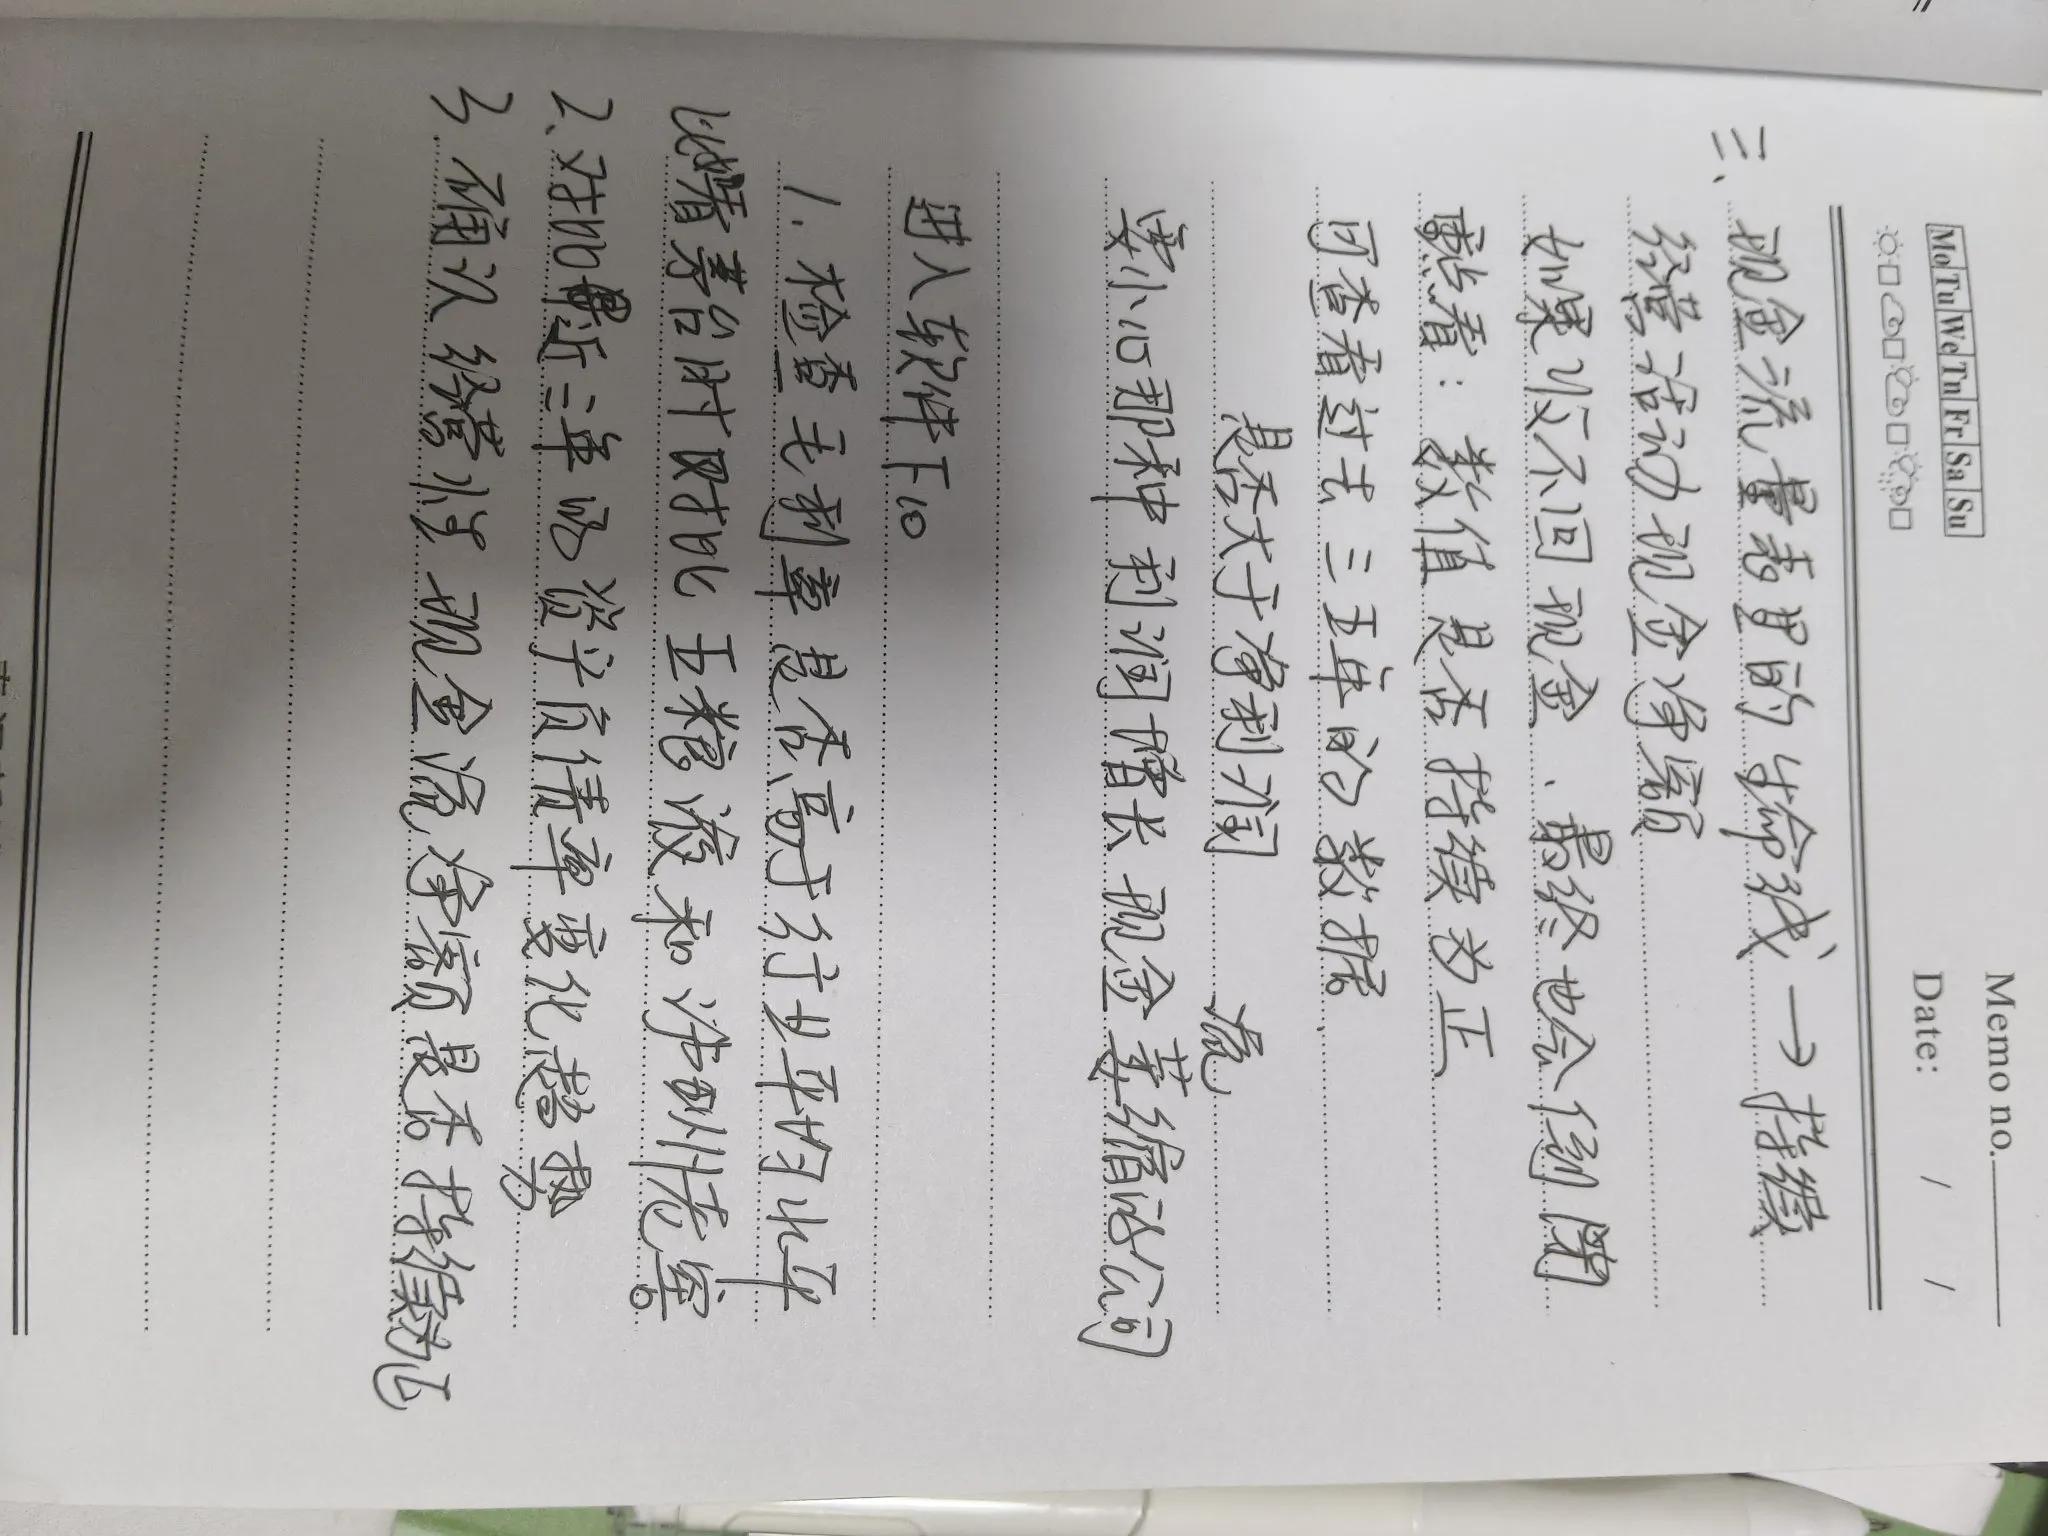 Memo no.
Mo Tu We Tn Fr Sa Su
Date: / /
三、现金流量表里的生命线 → 持续
经营活动现金净额
如果收不回现金、最终也会倒闭
点看：数值是否持续为正
可查看过去三五年的数据。
是否大于净利润
要小心那种利润增长现金流萎缩的公司
进入软件F10
1.检查毛利率是否高于行业平均水平
比如看茅台时对比五粮液和泸州老窖。
2、对比最近三年的资产负债率变化趋势
3.确认经营性现金流净额是否持续为正